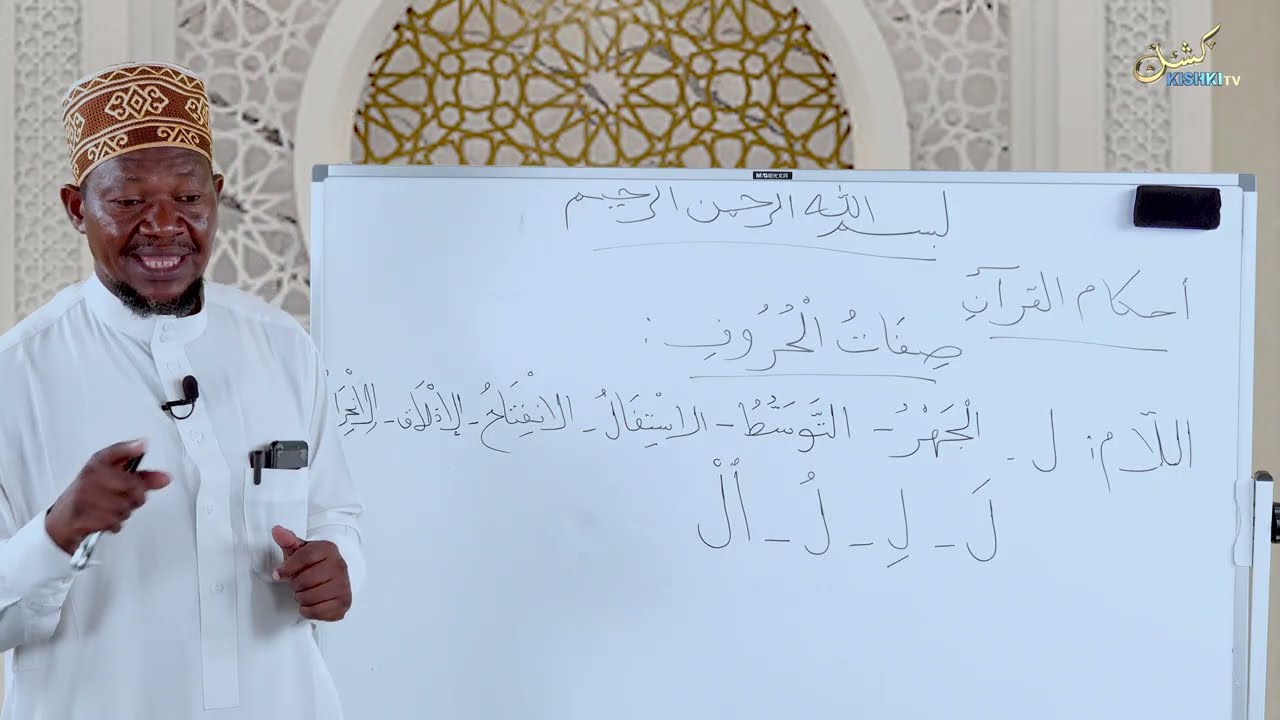 كشك
KISHKI TV
M&G 晨光文具
بسم الله الرحمن الرحيم
أحكام القرآنِ
صِفَاتُ الْحُرُوفِ :
اللّام: ل - الْجَهْرُ - التَّوَسُّطُ - الاسْتِفَالُ - الانْفِتَاحُ - الإذْلَاق -
لَ - لِ - لُ - أُلْ